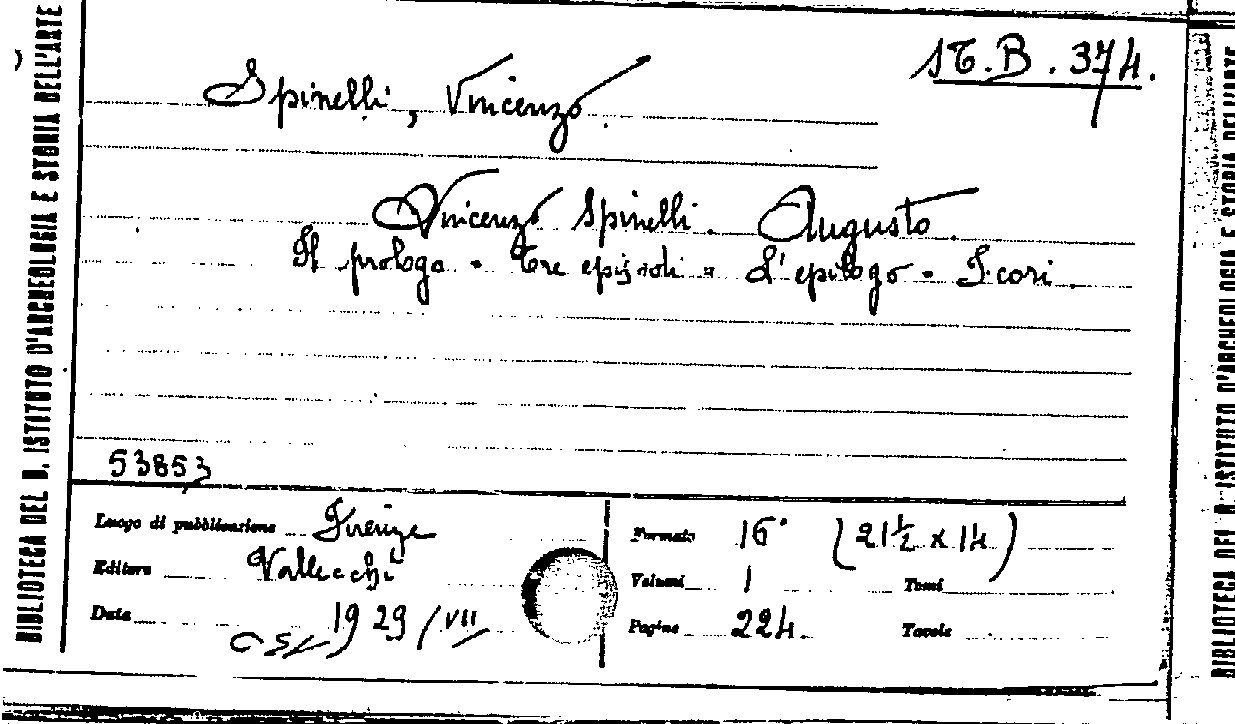 BIBLIOTECA DEL R. ISTITUTO D'ARCHEOLOGIA E STORIA DELL'ARTE
ST.B.374.
Spinelli, Vincenzo.
Vincenzo Spinelli. Augusto.
Il prologo - Tre episodi - L'epilogo - I cori.
53853
Luogo di pubblicazione Firenze
Editore Vallecchi
Data 1929/VII
Formato 16° (21½ x 14)
Volumi 1 Tomi
Pagine 224. Tavole
BIBLIOTECA DEL R. ISTITUTO D'ARCHEOLOGIA E STORIA DELL'ARTE